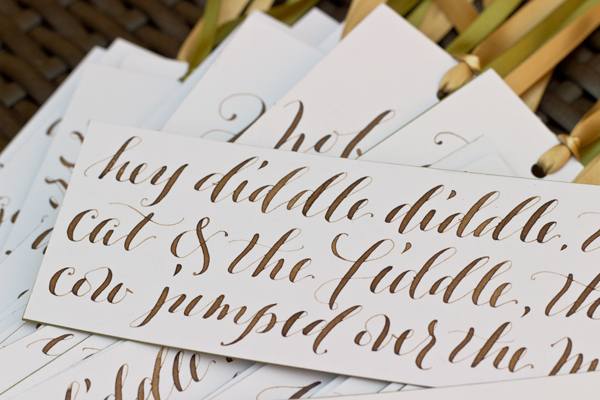 hey diddle diddle,
cat & the fiddle,
cow jumped over the